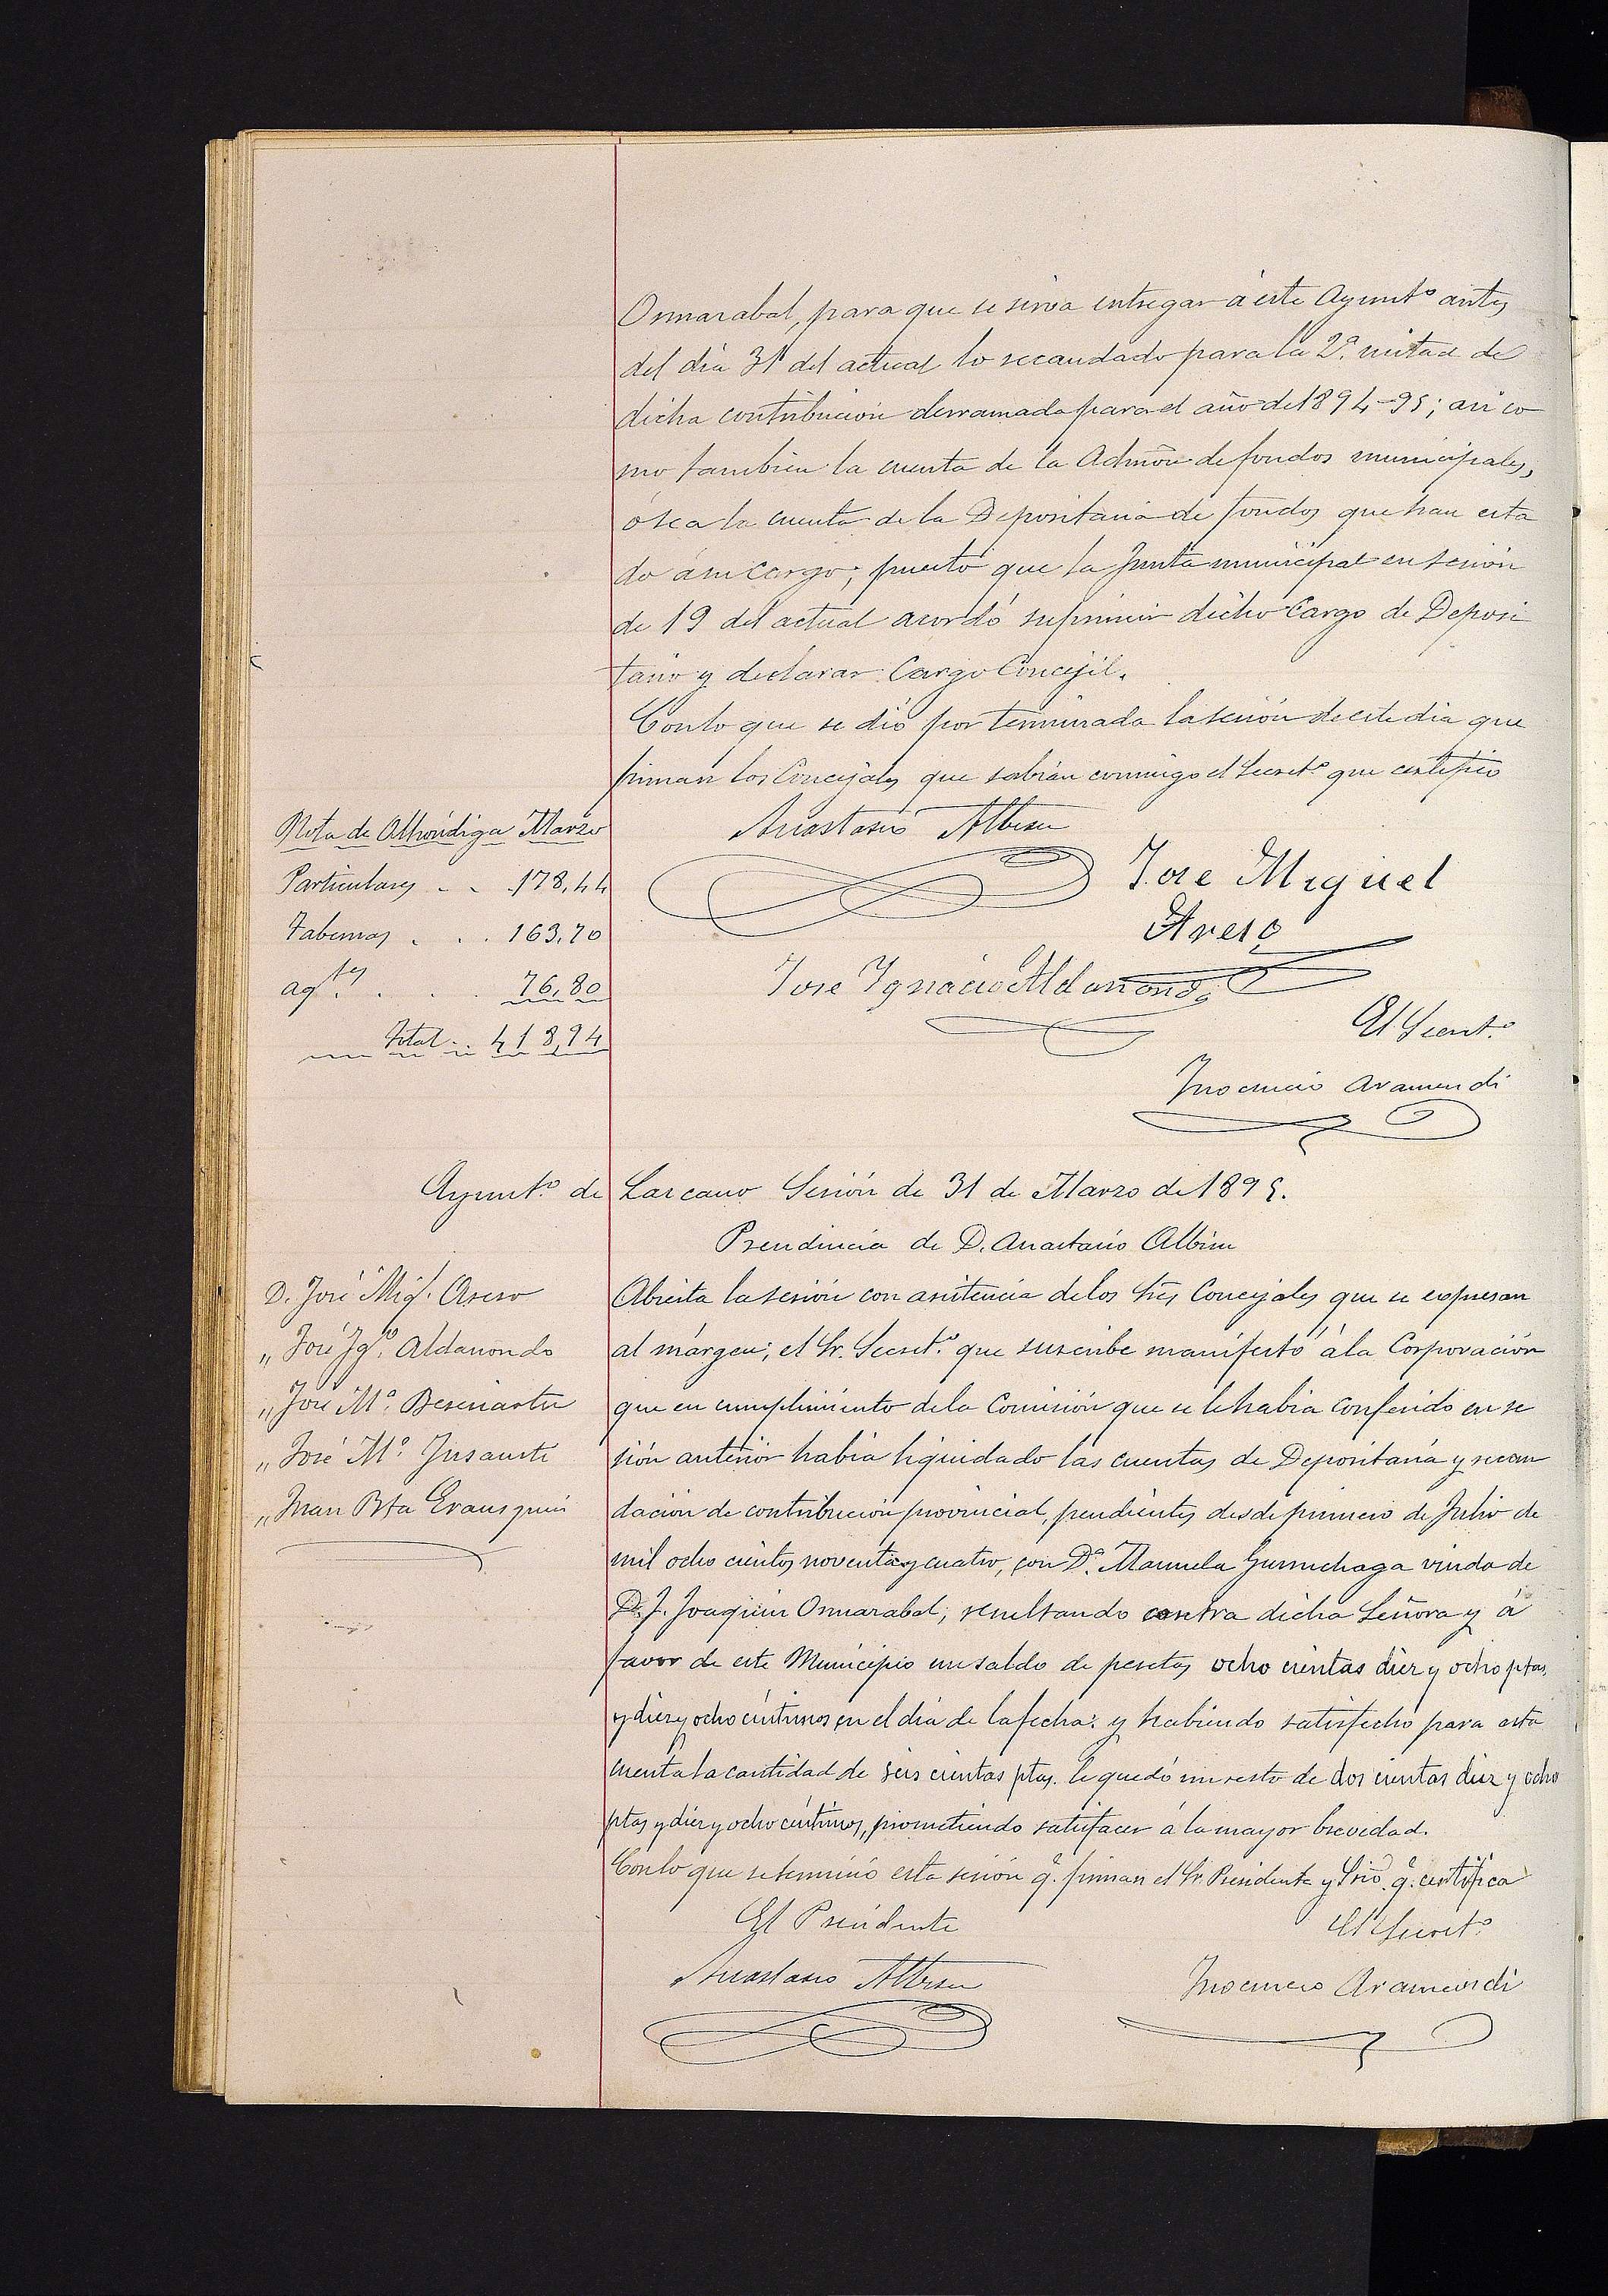 Ormazabal, para que se sirva entregar á este Ayuntº antes
del dia 31 del actual lo recaudado para la 2ª mitad de
dicha contribución derramada para el año de 1894-95; asi co
mo tambien la cuenta de la Admōn de fondos municipales,
ó sea la cuenta de la Depositaria de fondos que han esta
do á su cargo; puesto que la Junta municipal en sesión
de 19 del actual acordó suprimir dicho Cargo de Deposi
tario y declarar Cargo Concejil.
Con lo que se dió por terminada la sesión de este dia que
firman los Concejales que sabian conmigo el Secretº que certifico
Nota de Alhóndiga Marzo
Particulares . . . 178,44
Tabernas . . . 163,70
agtes. . . . 76,80
Total . . 418,94
Anastasio Albisu
Jose Miguel
Areso
Jose Ignacio Aldanondo
El Secretº
Inocencio Aramendi
Ayuntº de Lazcano Sesión de 31 de Marzo de 1895.
Presidencia de D. Anastasio Albisu
D. José Migl. Areso
„ José Igº. Aldanondo
„ José Mª. Beseiartu
„ José Mª. Insausti
„ Juan Bta Erausquin
Abierta la sesión con asistencia de los Sres Concejales que se expresan
al márgen; el Sr. Secretº que suscribe manifestó á la Corporación
que en cumplimiento de la Comisión que se le habia conferido en se
sión anterior habia liquidado las cuentas de Depositaria y recau
dación de contribución provincial, pendientes desde primero de Julio de
mil ocho cientos noventa y cuatro, con Dª. Manuela Gurruchaga viuda de
D. J. Joaquin Ormazabal, resultando contra dicha Señora y á
favor de este Municipio un saldo de pesetas ocho cientas diez y ocho ptas.
y diez y ocho céntimos en el dia de la fecha: y habiendo satisfecho para esta
cuenta la cantidad de seis cientas ptas. le quedó un resto de dos cientas diez y ocho
ptas y diez y ocho céntimos, prometiendo satisfacer á la mayor brevedad.
Con lo que se terminó esta sesión q. firman el Sr. Presidente y Srio. q. certifica
El Presidente
El Secretº
Anastasio Albisu
Inocencio Aramendi